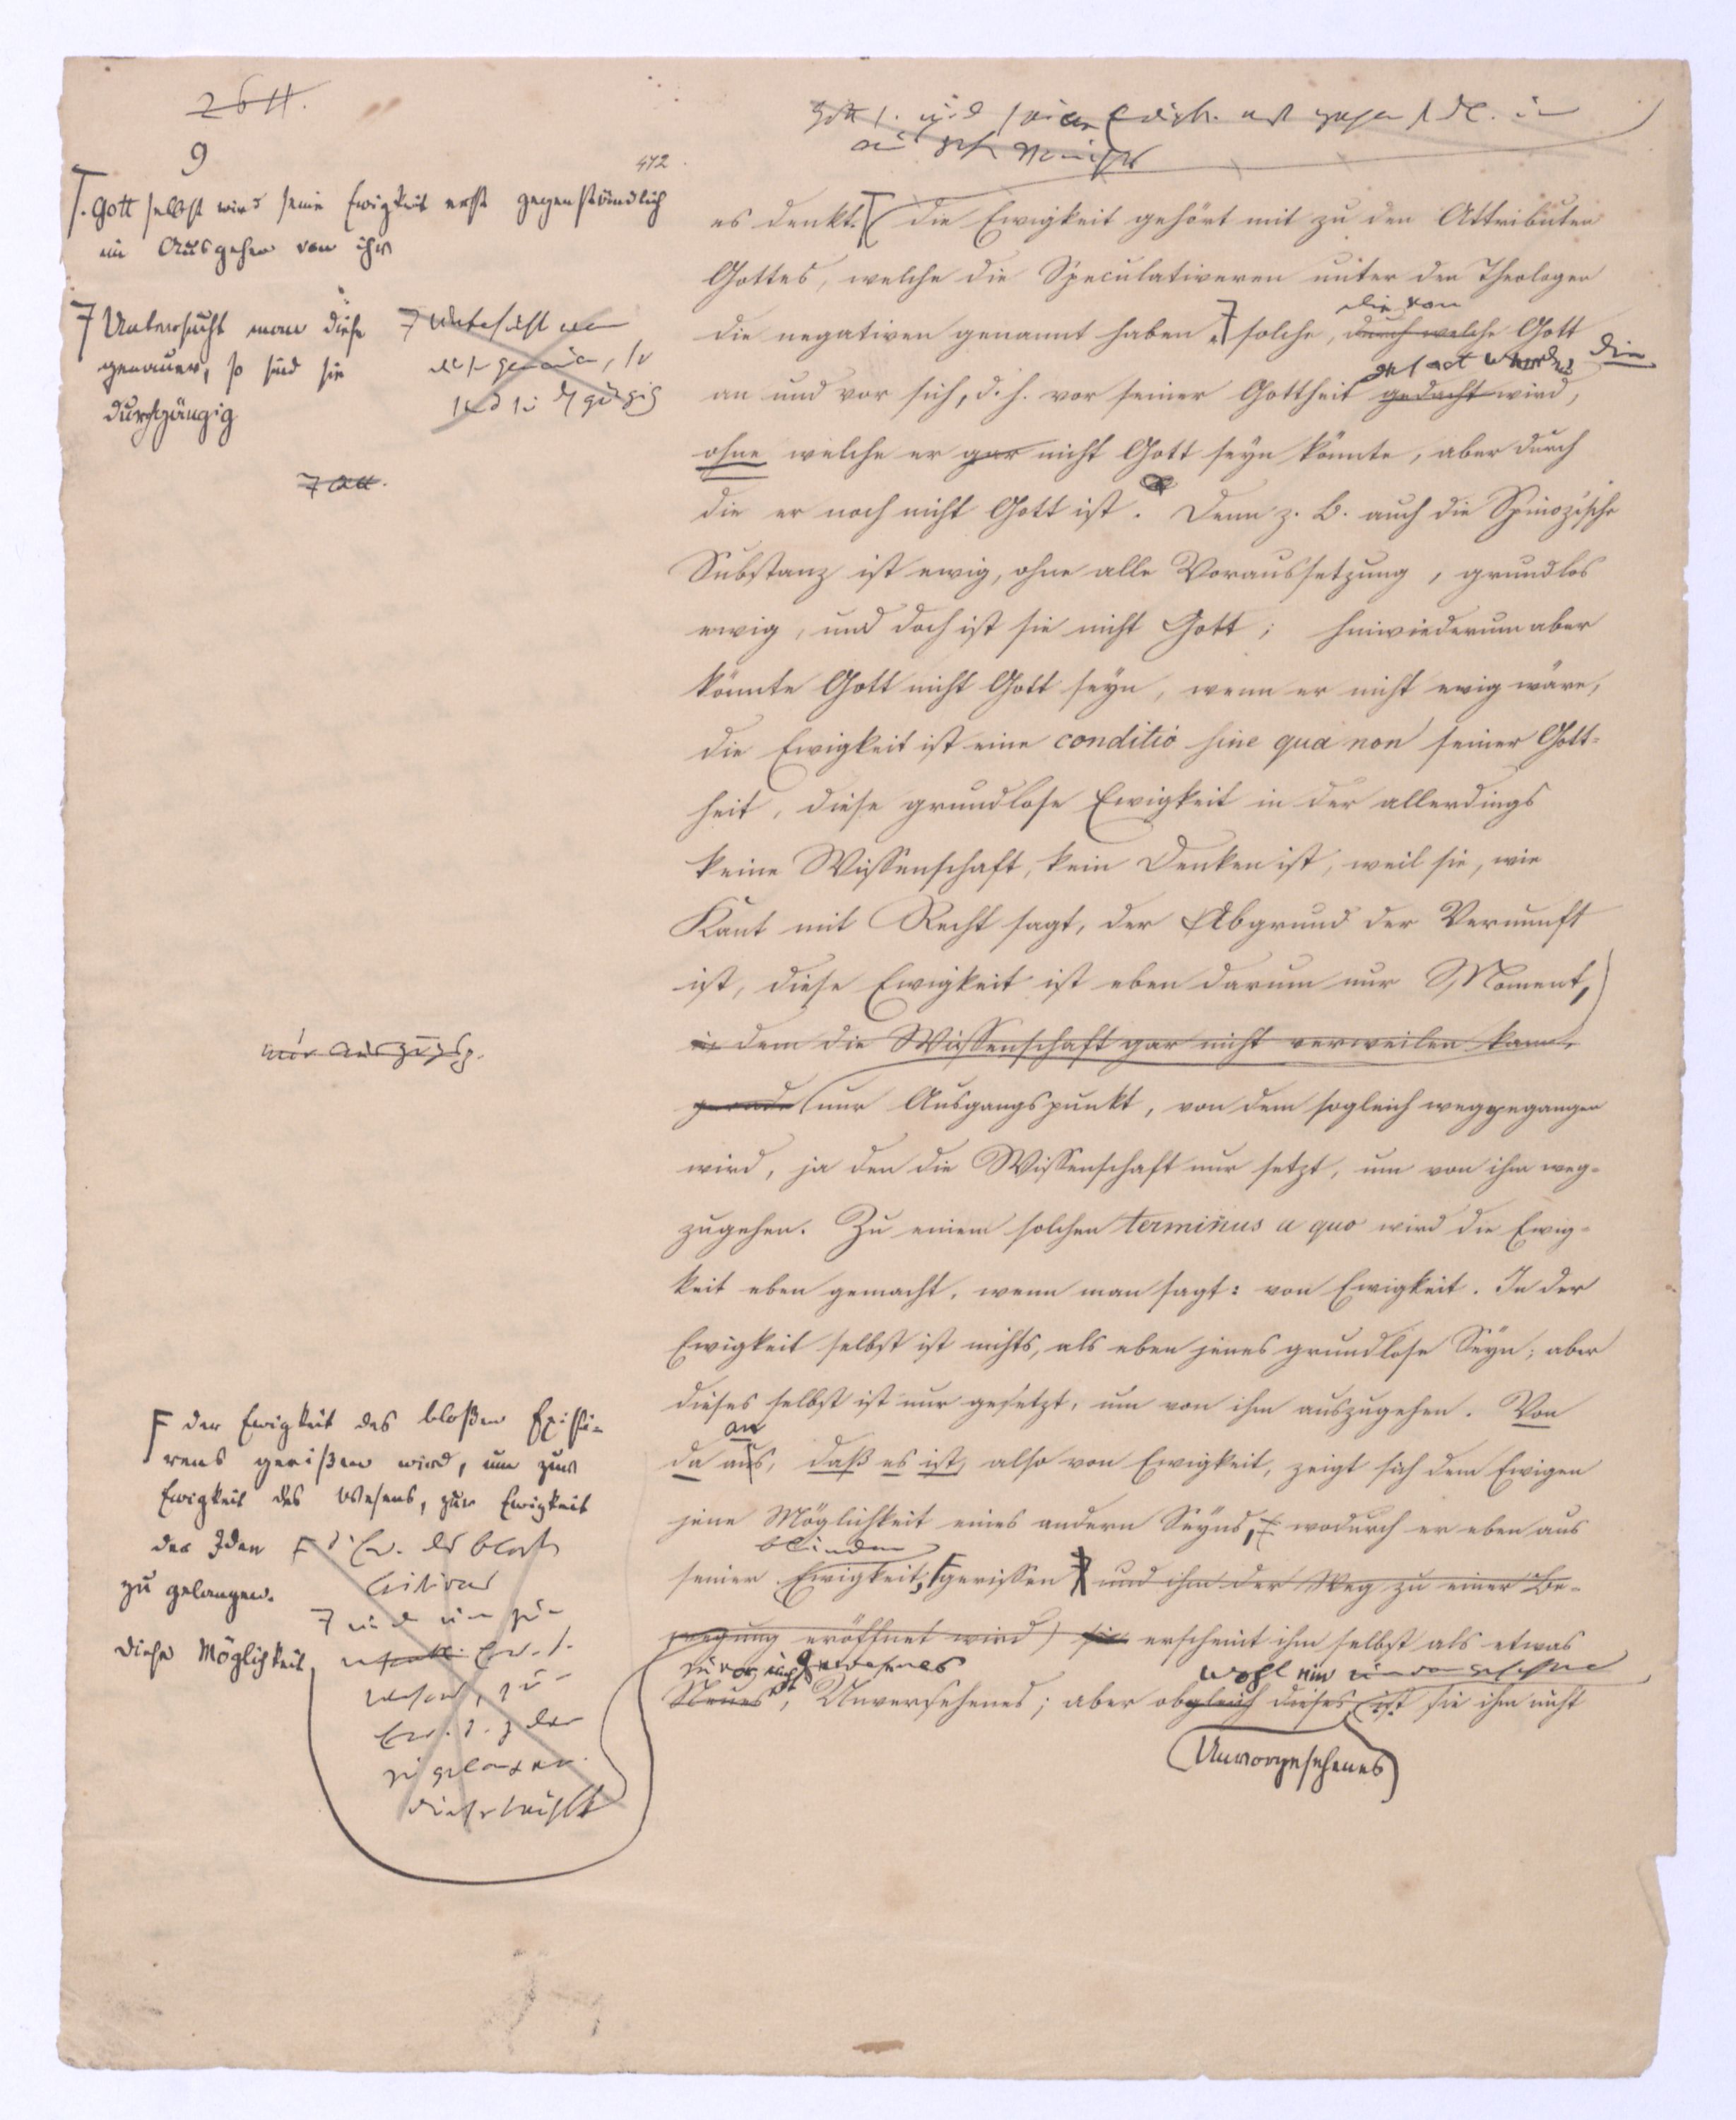 9
472.
Gott selbst wird seine Ewigkeit erst gegenständlich
im Ausgehen von ihr
Untersucht man diese
genauer, so sind sie
durchgängig
es denkt. die Ewigkeit gehört mit zu den Attributen
Gottes, welche die Speculativeren unter den Theologen
die negativen genannt haben, solche, durch welche Gott
an und vor sich, d. h. vor seiner Gottheit gedacht wird, die
ohne welche er gar nicht Gott seyn könnte, aber durch
die er noch nicht Gott ist. Denn z. B. auch die Spinozische
Substanz ist ewig, ohne alle Voraussetzung, grundlos
ewig, und doch ist sie nicht Gott; hinwiederum aber
könnte Gott nicht Gott seyn, wenn er nicht ewig wäre,
die Ewigkeit ist eine conditio sine qua non seiner Gott-
heit, diese grundlose Ewigkeit in der allerdings
keine Wissenschaft, kein Denken ist, weil sie, wie
Kant mit Recht sagt, der Abgrund der Vernunft
ist, diese Ewigkeit ist eben darum nur Moment,
in dem die Wissenschaft gar nicht verweilen kann,
gerade nur Ausgangspunkt, von dem sogleich weggegangen
wird, ja den die Wissenschaft nur setzt, um von ihm weg-
zugehen. Zu einem solchen terminus a quo wird die Ewig-
keit eben gemacht, wenn man sagt: von Ewigkeit. In der
Ewigkeit selbst ist nichts, als eben jenes grundlose Seyn; aber
dieses selbst ist nur gesetzt, um von ihm auszugehen. Von
an
da aus, daß es ist, also von Ewigkeit, zeigt sich dem Ewigen
jene Möglichkeit eines andern Seyns, wodurch er eben aus
blinden
seiner Ewigkeit, gerissen und ihm der Weg zu einer Be-
wegung eröffnet wird) sie erscheint ihm selbst als etwas
zuvor nicht gewesenes
Neues, Unversehenes; aber obgleich dieses ist sie ihm nicht
Unvorgesehenes
der Ewigkeit des bloßen Existi-
rens gerissen wird, um zur
Ewigkeit des Wesens, zur Ewigkeit
der Iden
zu gelangen.
Diese Möglichkeit